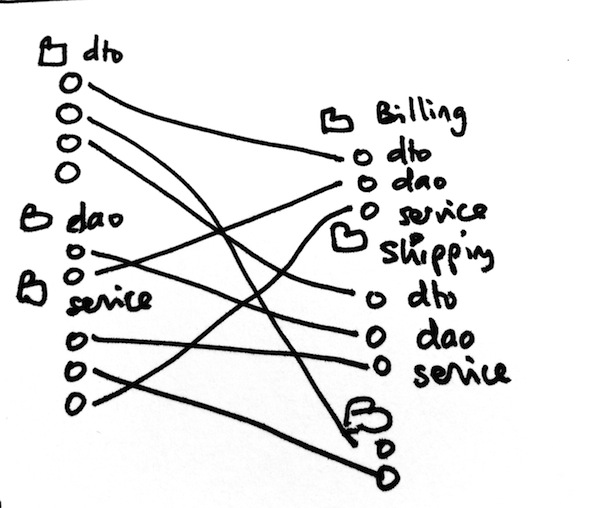 dto
dao
service
Billing
dto
dao
service
Shipping
dto
dao
service